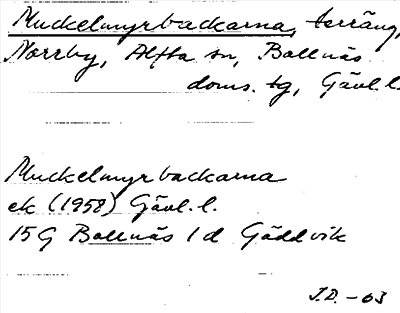 Muckelmyrbackarna, terräng,
Norrby, Alfta sn, Bollnäs
doms. tg, Gävl. l.
Muckelmyrbackarna
ek (1958) Gävl. l.
15G Bollnäs 1 d Gäddvik
J.D. - 63